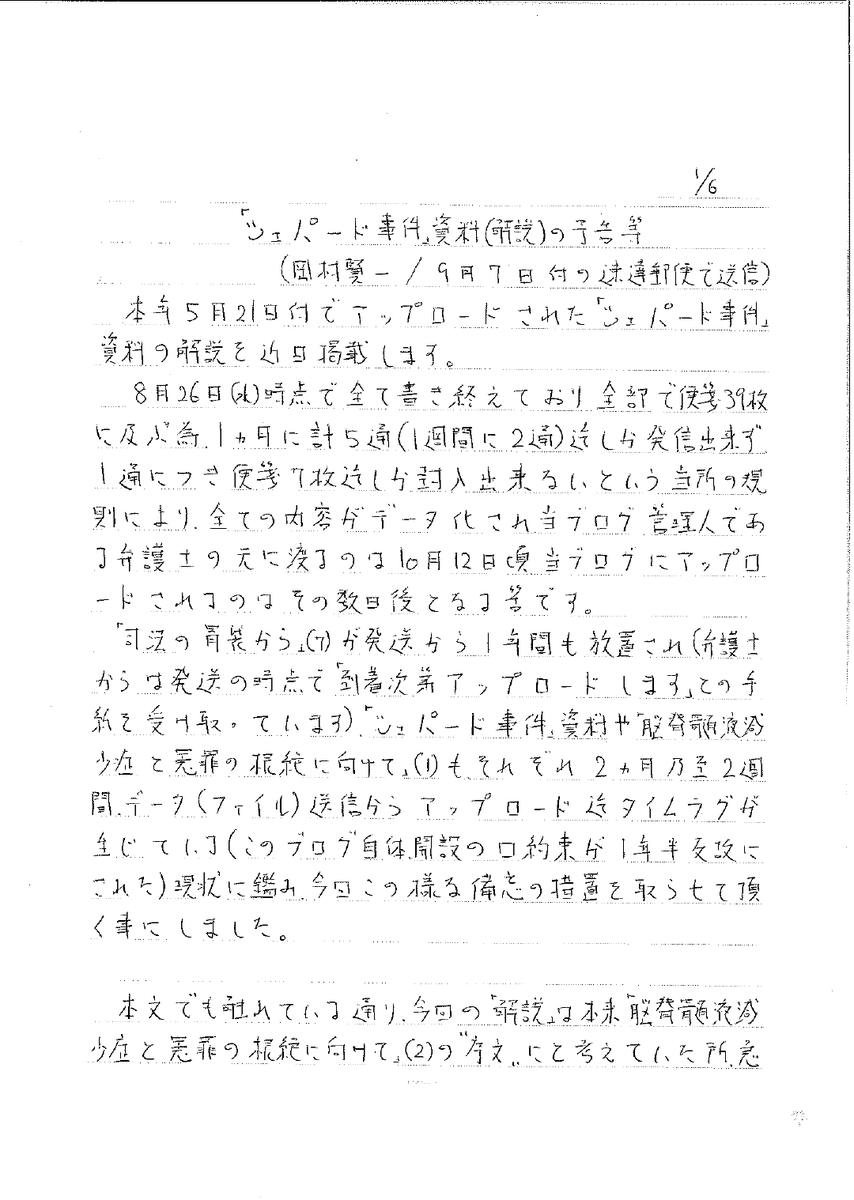 1/6
「シェパード事件」資料(解説)の予告等
(岡村賢一/9月7日付の速達郵便で送信)
本年5月21日付でアップロードされた「シェパード事件」
資料の解説を近日掲載します。
8月26日(水)時点で全て書き終えており全部で便箋39枚
に及ぶ為、1ヵ月に計5通(1週間に2通)迄しか発信出来ず
1通につき便箋7枚迄しか封入出来ないという当所の規
則により、全ての内容がデータ化され当ブログ管理人であ
る弁護士の元に渡るのは10月12日頃当ブログにアップロ
ードされるのはその数日後となる筈です。
「司法の胃袋から」(7)が発送から1年間も放置され(弁護士
からは発送の時点で「到着次第アップロードします」との手
紙を受け取っています)、「シェパード事件」資料や「脳脊髄液減
少症と冤罪の根絶に向けて」(1)もそれぞれ2ヵ月乃至2週
間、データ(ファイル)送信からアップロード迄タイムラグが
生じている(このブログ自体、開設の口約束が1年半反故に
された)現状に鑑み、今回この様な備忘の措置を取らせて頂
く事にしました。
本文でも触れている通り、今回の「解説」は本来「脳脊髄液減
少症と冤罪の根絶に向けて」(2)の"序文"にと考えていた所、急